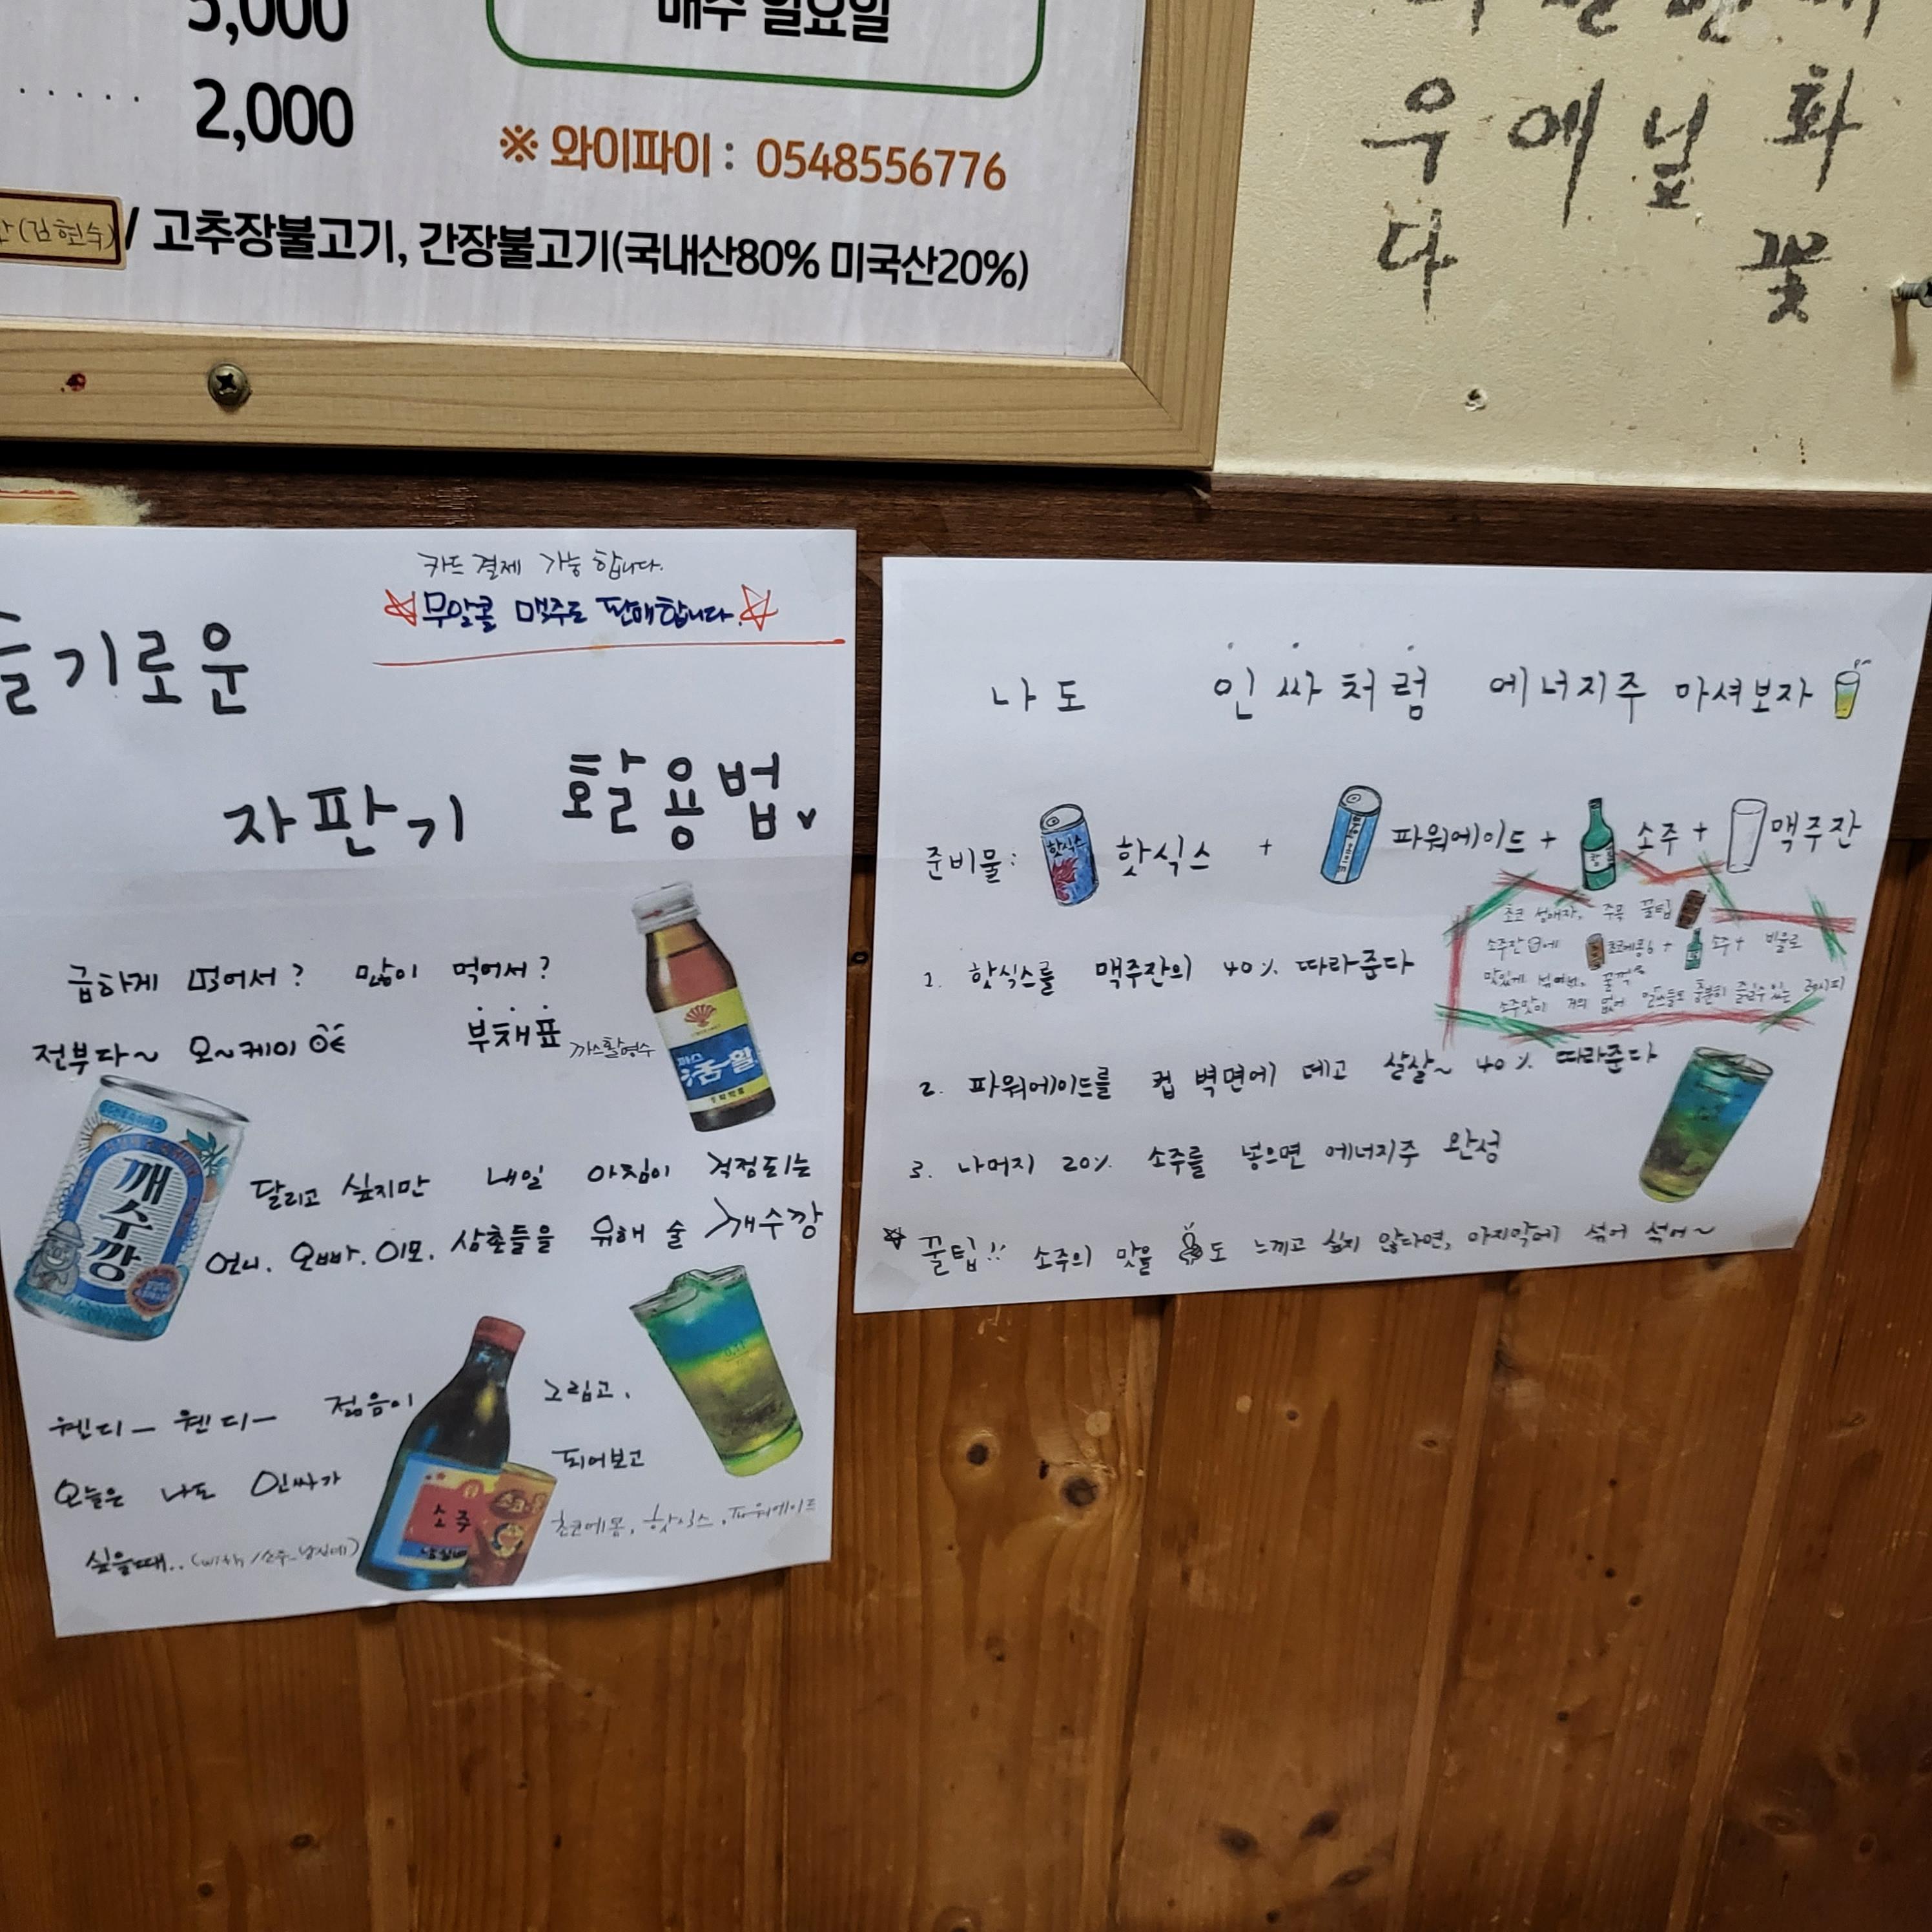 5,000
2,000
매주 일요일
※ 와이파이 : 0548556776
(김현수) / 고추장불고기, 간장불고기(국내산80% 미국산20%)
우 에 날 화
다 꽃
카드 결제 가능 합니다.
☆무알콜 맥주도 판매합니다.☆
슬기로운
자판기 활용법
급하게 먹어서? 많이 먹어서?
전부다~ 오~케이
부채표 까스활명수
까스 活 활
깨수깡
달리고 싶지만 내일 아침이 걱정되는
언니. 오빠. 이모. 삼촌들을 위해 술 깨수깡
웬디- 웬디- 젊음이 그립고.
오늘은 나도 인싸가 되어보고
싶을때.. (with/소주_
초코에몽, 핫식스, 파워에이드
소주
나도 인싸처럼 에너지주 마셔보자
준비물: 핫식스 핫식스 + 파워에이드 + 소주 + 맥주잔
초코 성애자, 주목 꿀팁
소주잔에 초코에몽6 + 소주4 비율로
맛있게 섞어서, 꿀꺽
소주맛이 거의 없어 알쓰들도 충분히 즐길수있는 레시피
1. 핫식스를 맥주잔의 40% 따라준다
2. 파워에이드를 컵 벽면에 데고 살살~ 40% 따라준다
3. 나머지 20% 소주를 넣으면 에너지주 완성
☆ 꿀팁!! 소주의 맛을 도 느끼고 싶지 않다면, 마지막에 섞어 섞어~